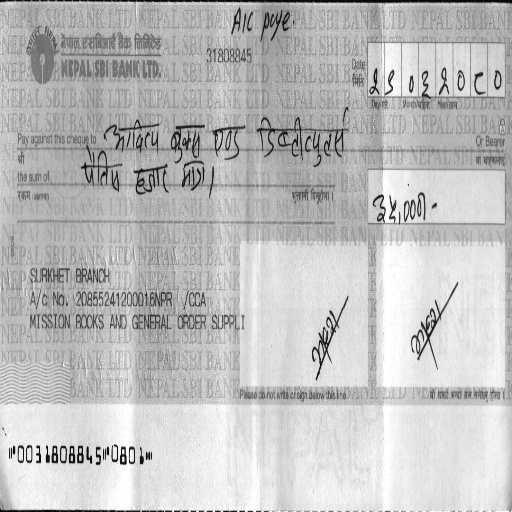 A/C payee.
नेपाल एसबिआई बैंक लिमिटेड
NEPAL SBI BANK LTD.
31808845
Date
मिति
२९०३२०८०
Pay against this cheque to आदित्य बुक्स एण्ड डिस्ट्रीब्युटर्स
Or Bearer
श्री
वा वाहकलाई
the sum of पैंतिस हजार मात्र।
रकम
३५,०००।-
SURKHET BRANCH
A/C No. 20855241200016NPR /CCA
MISSION BOOKS AND GENERAL ORDER SUPPLI
Please do not write or sign below this line.
"0031808845"0801"